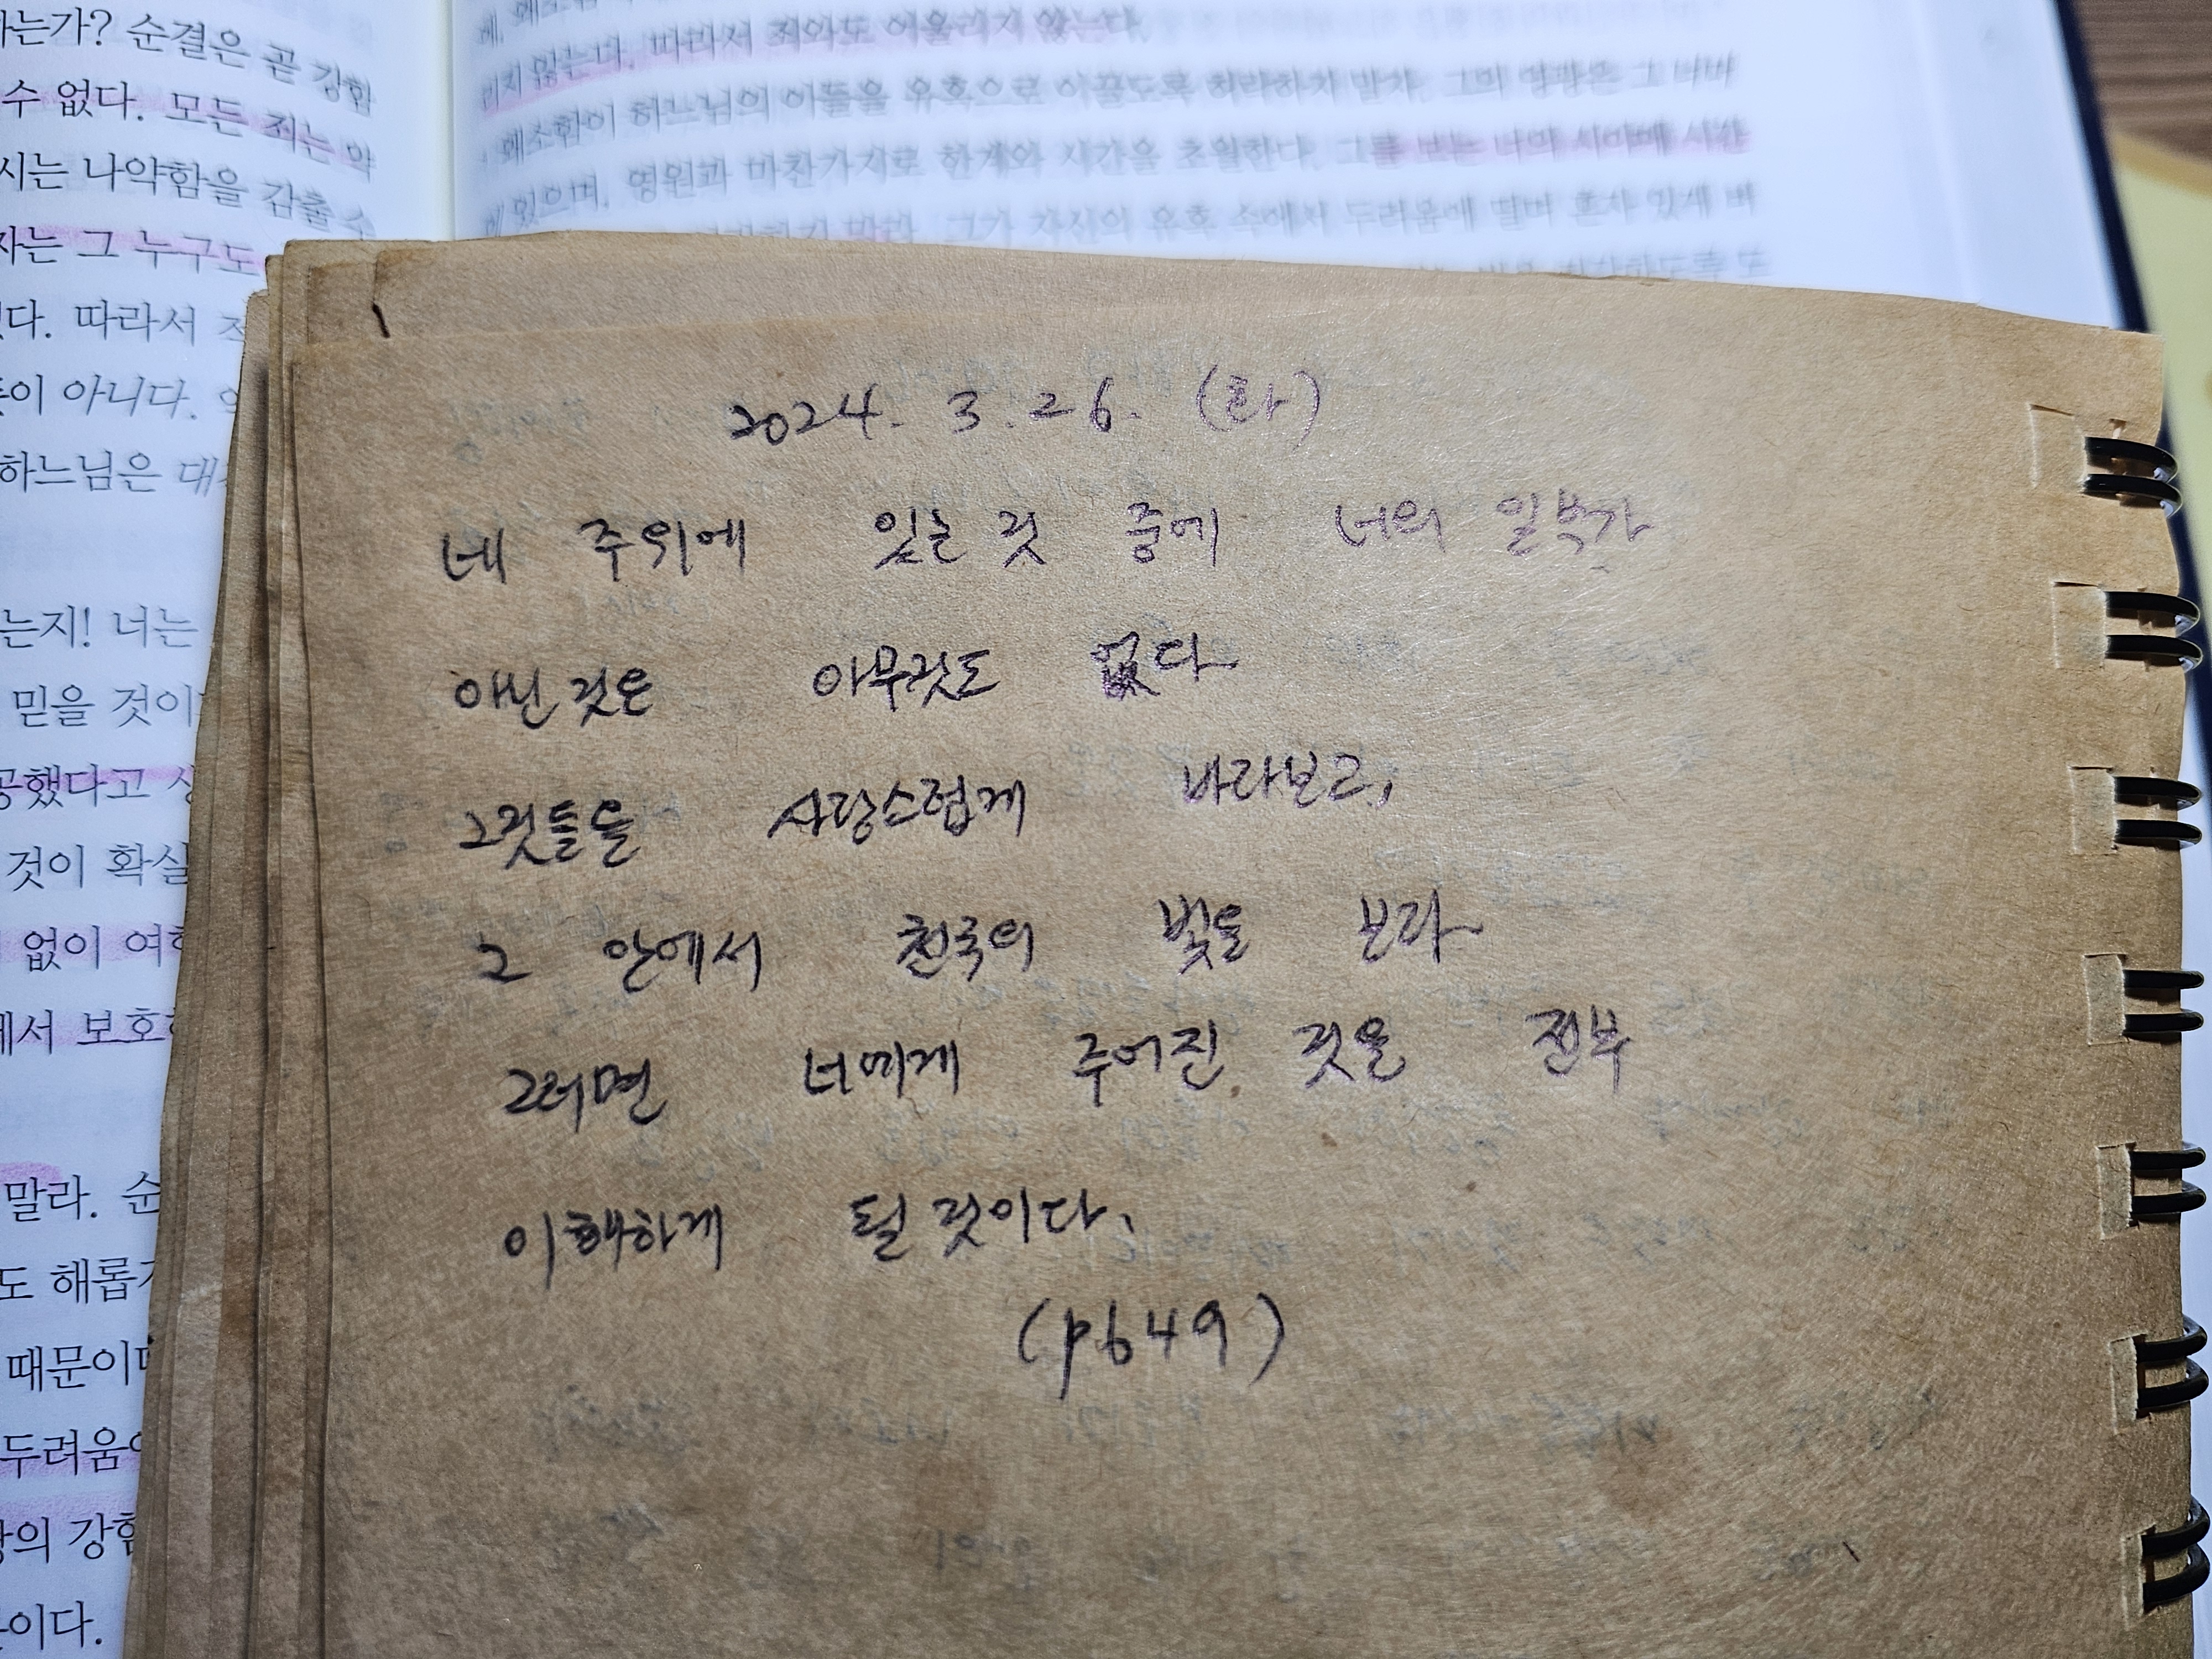 하는가? 순결은 곧 강함
수 없다. 모든 죄는 약
시는 나약함을 감출 수
자는 그 누구도
다. 따라서
이 아니다.
하느님은
는지! 너는
믿을 것이
공했다고
것이 확실
없이
에서 보호
말라. 순
도 해롭
때문이
두려움
의 강함
이다.
리지 않는다. 따라서 죄와도 어울리지 않는다.
왜소함이 하느님의 아들을 유혹으로 이끌도록 허락하지 말라. 그의 영광은 그 너머
에 있으며, 영원과 마찬가지로 한계와 시간을 초월한다. 그를 보는 너의 시야에 시간
말라. 그가 자신의 유혹 속에서 두려움에 떨며 혼자 있게 버
2024. 3. 26. (화)
네 주위에 있는 것 중에 너의 일부가
아닌 것은 아무것도 없다
그것들을 사랑스럽게 바라보고,
그 안에서 천국의 빛을 보라
그러면 너에게 주어진 것을 전부
이해하게 될 것이다.
(p649)